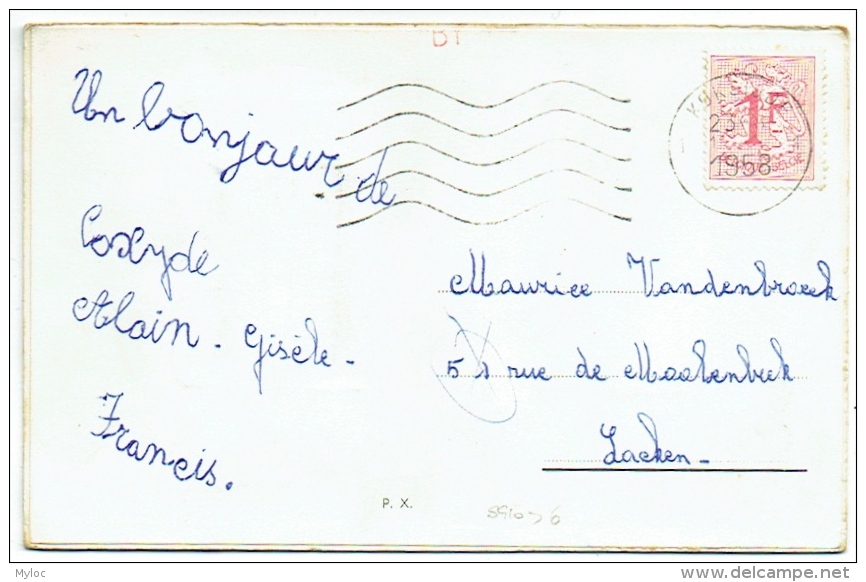 BT
Un bonjour de
Coxyde
Alain - Gisèle -
Francis.
1F
BELGIE
1958
Maurice Vandenbroeck
51 rue de Moolenbeek
Laeken -
P. X.
Myloc
delcampe.net